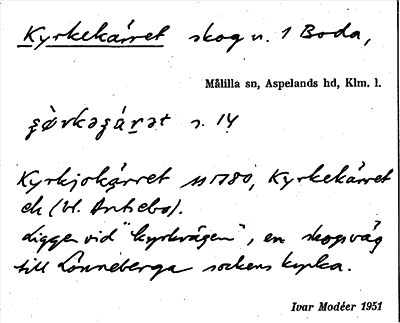 Kyrkekärret skog n. 1 Boda,
Målilla sn, Aspelands hd, Klm. l.
s. 14
Kyrkjokärret 1780, Kyrkekärret
ek (bl. Antebo).
Ligger vid "kyrkvägen", en skogsväg
till Lönneberga sockens kyrka.
Ivar Modéer 1951